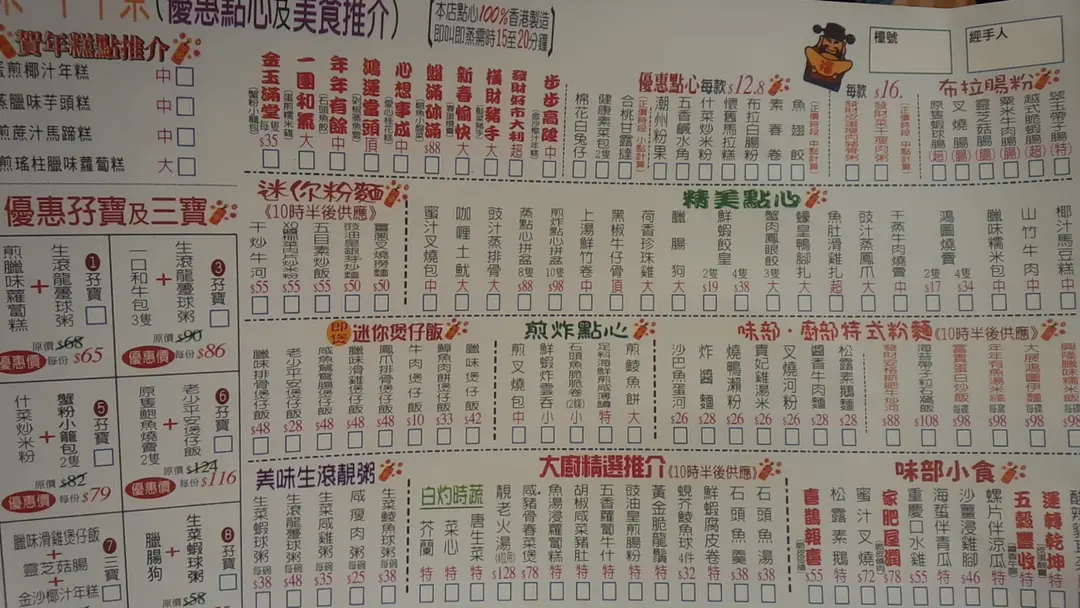 (優惠點心及美食推介)
本店點心100%香港製造
即叫即蒸需時15至20分鐘
檯號
經手人
賀年糕點推介
蛋煎椰汁年糕 中
蒸臘味芋頭糕 中
煎蔗汁馬蹄糕 中
煎瑤柱臘味蘿蔔糕 大
金玉滿堂 (蟹粉小籠包) $35
一團和氣 大
年年有餘 中
鴻運當頭 頂
心想事成 中
盤滿砵滿 $88
新春愉快 大
橫財豬手 大
發財好市大利 超
步步高陞 (金沙椰汁年糕) 中
棉花白兔仔
健康素菜包 2隻
合桃甘露撻
優惠點心每款$12.8
(正價時段 小點計算)
潮州粉果
五香鹹水角
什菜炒米粉
懷舊馬拉糕
布拉白腸粉
素春卷
魚翅餃
(正價時段 中點計算)
每款$16.
布拉腸粉
原隻蝦腸(超)
叉燒腸(腸)
靈芝菇腸(腸)
粟米牛肉腸(腸)
越式脆脆腸(超)
迷你粉麵
《10時半後供應》
干炒牛河 $55
XO椰菜肉片炒米粉 $55
五目素炒飯 $55
豉油皇銀芽炒麵 $50
薑蔥叉燒撈麵 $50
精美點心
蜜汁叉燒包 中
咖喱土魷 大
豉汁蒸排骨 大
蒸點心拼盆 8隻 $88
煎炸點心拼盆 10隻 $98
上湯鮮竹卷 中
黑椒牛仔骨 頂
荷香珍珠雞 大
臘腸狗 大
鮮蝦餃皇 2隻 $19 4隻 $38
蟹肉鳳眼餃 3隻 大
蠔皇鴨腳扎 大
魚肚滑雞扎 超
豉汁蒸鳳爪 大
干蒸牛肉燒賣 中
鴻圖燒賣 2隻 $17 4隻 $34
臘味糯米包 中
山竹牛肉 中
椰汁馬豆糕 中
優惠孖寶及三寶
❶孖寶
生滾龍躉球粥
+
煎臘味蘿蔔糕
原價 $68
優惠價 每份 $65
❸孖寶
生滾龍躉球粥
+
一口和牛包 3隻
原價 $90
優惠價 每份 $86
❺孖寶
蟹粉小籠包 2隻
+
什菜炒米粉
原價 $82
優惠價 每份 $79
❻孖寶
老少平安煲仔飯
+
原隻鮑魚燒賣 2隻
原價 $124
優惠價 每份 $116
❼三寶
臘味滑雞煲仔飯
+
靈芝菇腸
+
金沙椰汁年糕
❽孖寶
生菜蝦球粥
+
臘腸狗
原價 $58
即煲 迷你煲仔飯
臘味排骨煲仔飯 $48
老少平安煲仔飯 $28
鹹魚鴛鴦腸煲仔飯 $48
臘味滑雞煲仔飯 $48
鳳爪排骨煲仔飯 $48
牛肉煲仔飯 $10
鯪魚肉餅煲仔飯 $33
臘味煲仔飯 $42
煎炸點心
煎叉燒包 中
鮮蝦炸雲吞 小
石頭魚脆脆卷 (2條) 小
足料海鮮煎咸薄罉 特
煎鯪魚餅 大
味部・廚部特式粉麵 (10時半後供應)
沙巴魚蛋河 $26
炸醬麵 $28
燒鴨瀨粉 $26
貴妃雞湯米 $26
叉燒河粉 $26
醬香牛肉麵 $28
松露素鵝麵 $28
發財安格斯肥牛炒河 $88
海苔帶子粒窩飯 $108
富貴蛋白炒飯 每碟 $98
年年有魚湯米線 每碟 $98
大展鴻圖伊麵 每碟 $98
興隆臘味糯米飯 每碟 $98
美味生滾靚粥
生菜蝦球粥 每碗 $38
生滾龍躉球粥 每碗 $48
生菜咸雞粥 每碗 $35
咸瘦肉粥 每碗 $25
生菜鯪魚球粥 每碗 $38
大廚精選推介 (10時半後供應)
白灼時蔬
芥蘭 特
菜心 特
唐生菜 特
靚老火湯 (4位用) $128
咸豬骨春菜煲 $78
魚湯浸蘿蔔絲 特
胡椒咸菜豬肚 特
五香蘿蔔牛什 特
豉油皇煎腸粉 特
黃金脆龍鬚 特
蜆芥鯪魚球 4件 $32
鮮蝦腐皮卷 特
石頭魚羹 $38
石頭魚湯 $38
味部小食
喜鵲報喜 $55
松露素鵝 特
蜜汁叉燒 $72
家肥屋潤 $78
重慶口水雞 $55
海蜇伴青瓜 特
沙薑浸雞腳 $46
螺片伴涼瓜 特
五穀豐收 特
運轉乾坤 特